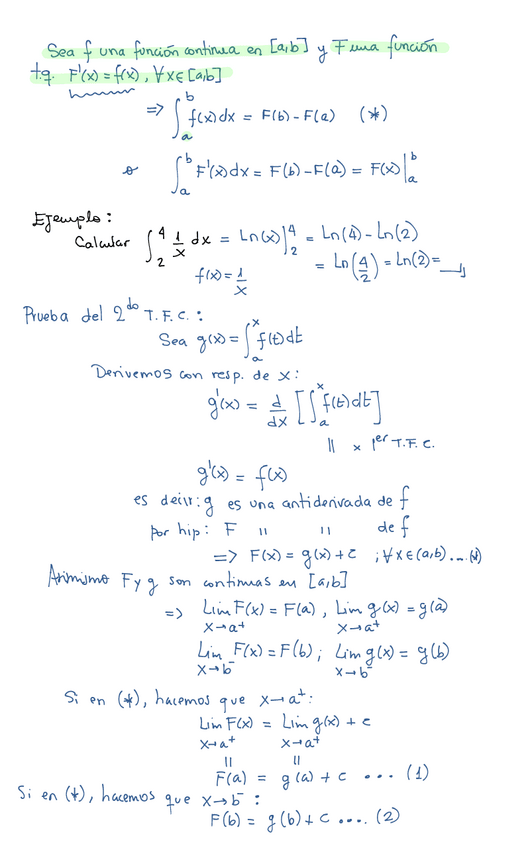 Sea f una función continua en [a,b] y F una función
tq. F'(x) = f(x), ∀x∈[a,b]
=> ∫_a^b f(x)dx = F(b)-F(a) (*)
o ∫_a^b F'(x)dx = F(b)-F(a) = F(x)|_a^b
Ejemplo:
Calcular ∫_2^4 1/x dx = Ln(x)|_2^4 = Ln(4)-Ln(2)
f(x)=1/x = Ln(4/2) = Ln(2) =
Prueba del 2do T.F.C.:
Sea g(x)=∫_a^x f(t)dt
Derivemos con resp. de x:
g'(x) = d/dx [∫_a^x f(t)dt]
|| x 1er T.F.C.
g'(x) = f(x)
es decir: g es una antiderivada de f
por hip: F " " de f
=> F(x) = g(x)+c ; ∀x∈(a,b) ...(*)
Asimismo F y g son continuas en [a,b]
=> Lim_{x→a+} F(x) = F(a), Lim_{x→a+} g(x) = g(a)
Lim_{x→b-} F(x) = F(b); Lim_{x→b-} g(x) = g(b)
Si en (*), hacemos que x→a+:
Lim_{x→a+} F(x) = Lim_{x→a+} g(x) + c
|| ||
F(a) = g(a) + c ... (1)
Si en (*), hacemos que x→b-:
F(b) = g(b)+c .... (2)